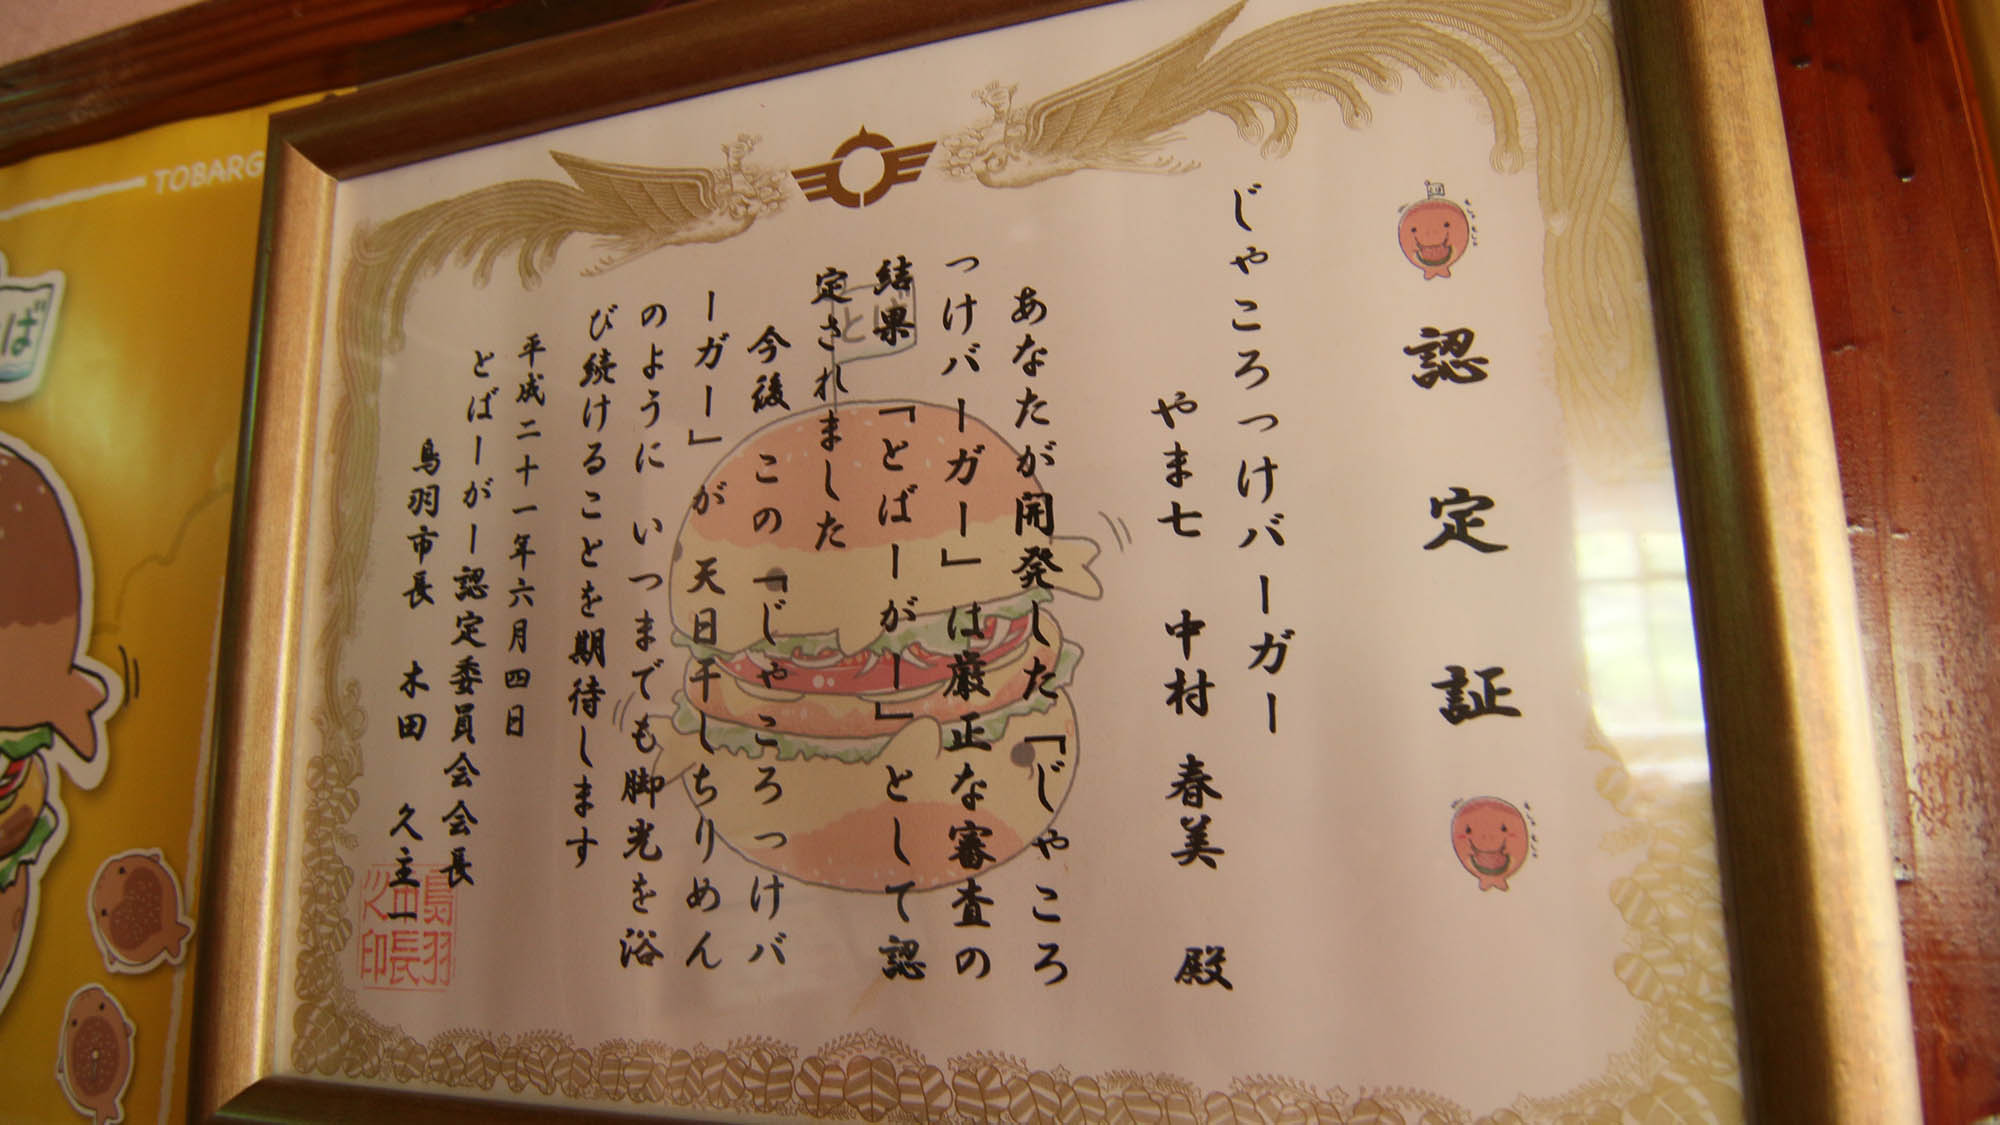 認定証
じゃころっけバーガー
やま七 中村 春美 殿
あなたが開発した「じゃころ
っけバーガー」は厳正な審査の
結果「とばーがー」として認
定されました
今後 この「じゃころっけバ
ーガー」が 天日干しちりめん
のように いつまでも脚光を浴
び続けることを期待します
平成二十一年六月四日
とばーがー認定委員会会長
鳥羽市長 木田 久主一
鳥羽
市長
之印
とば
TOBARG
ば